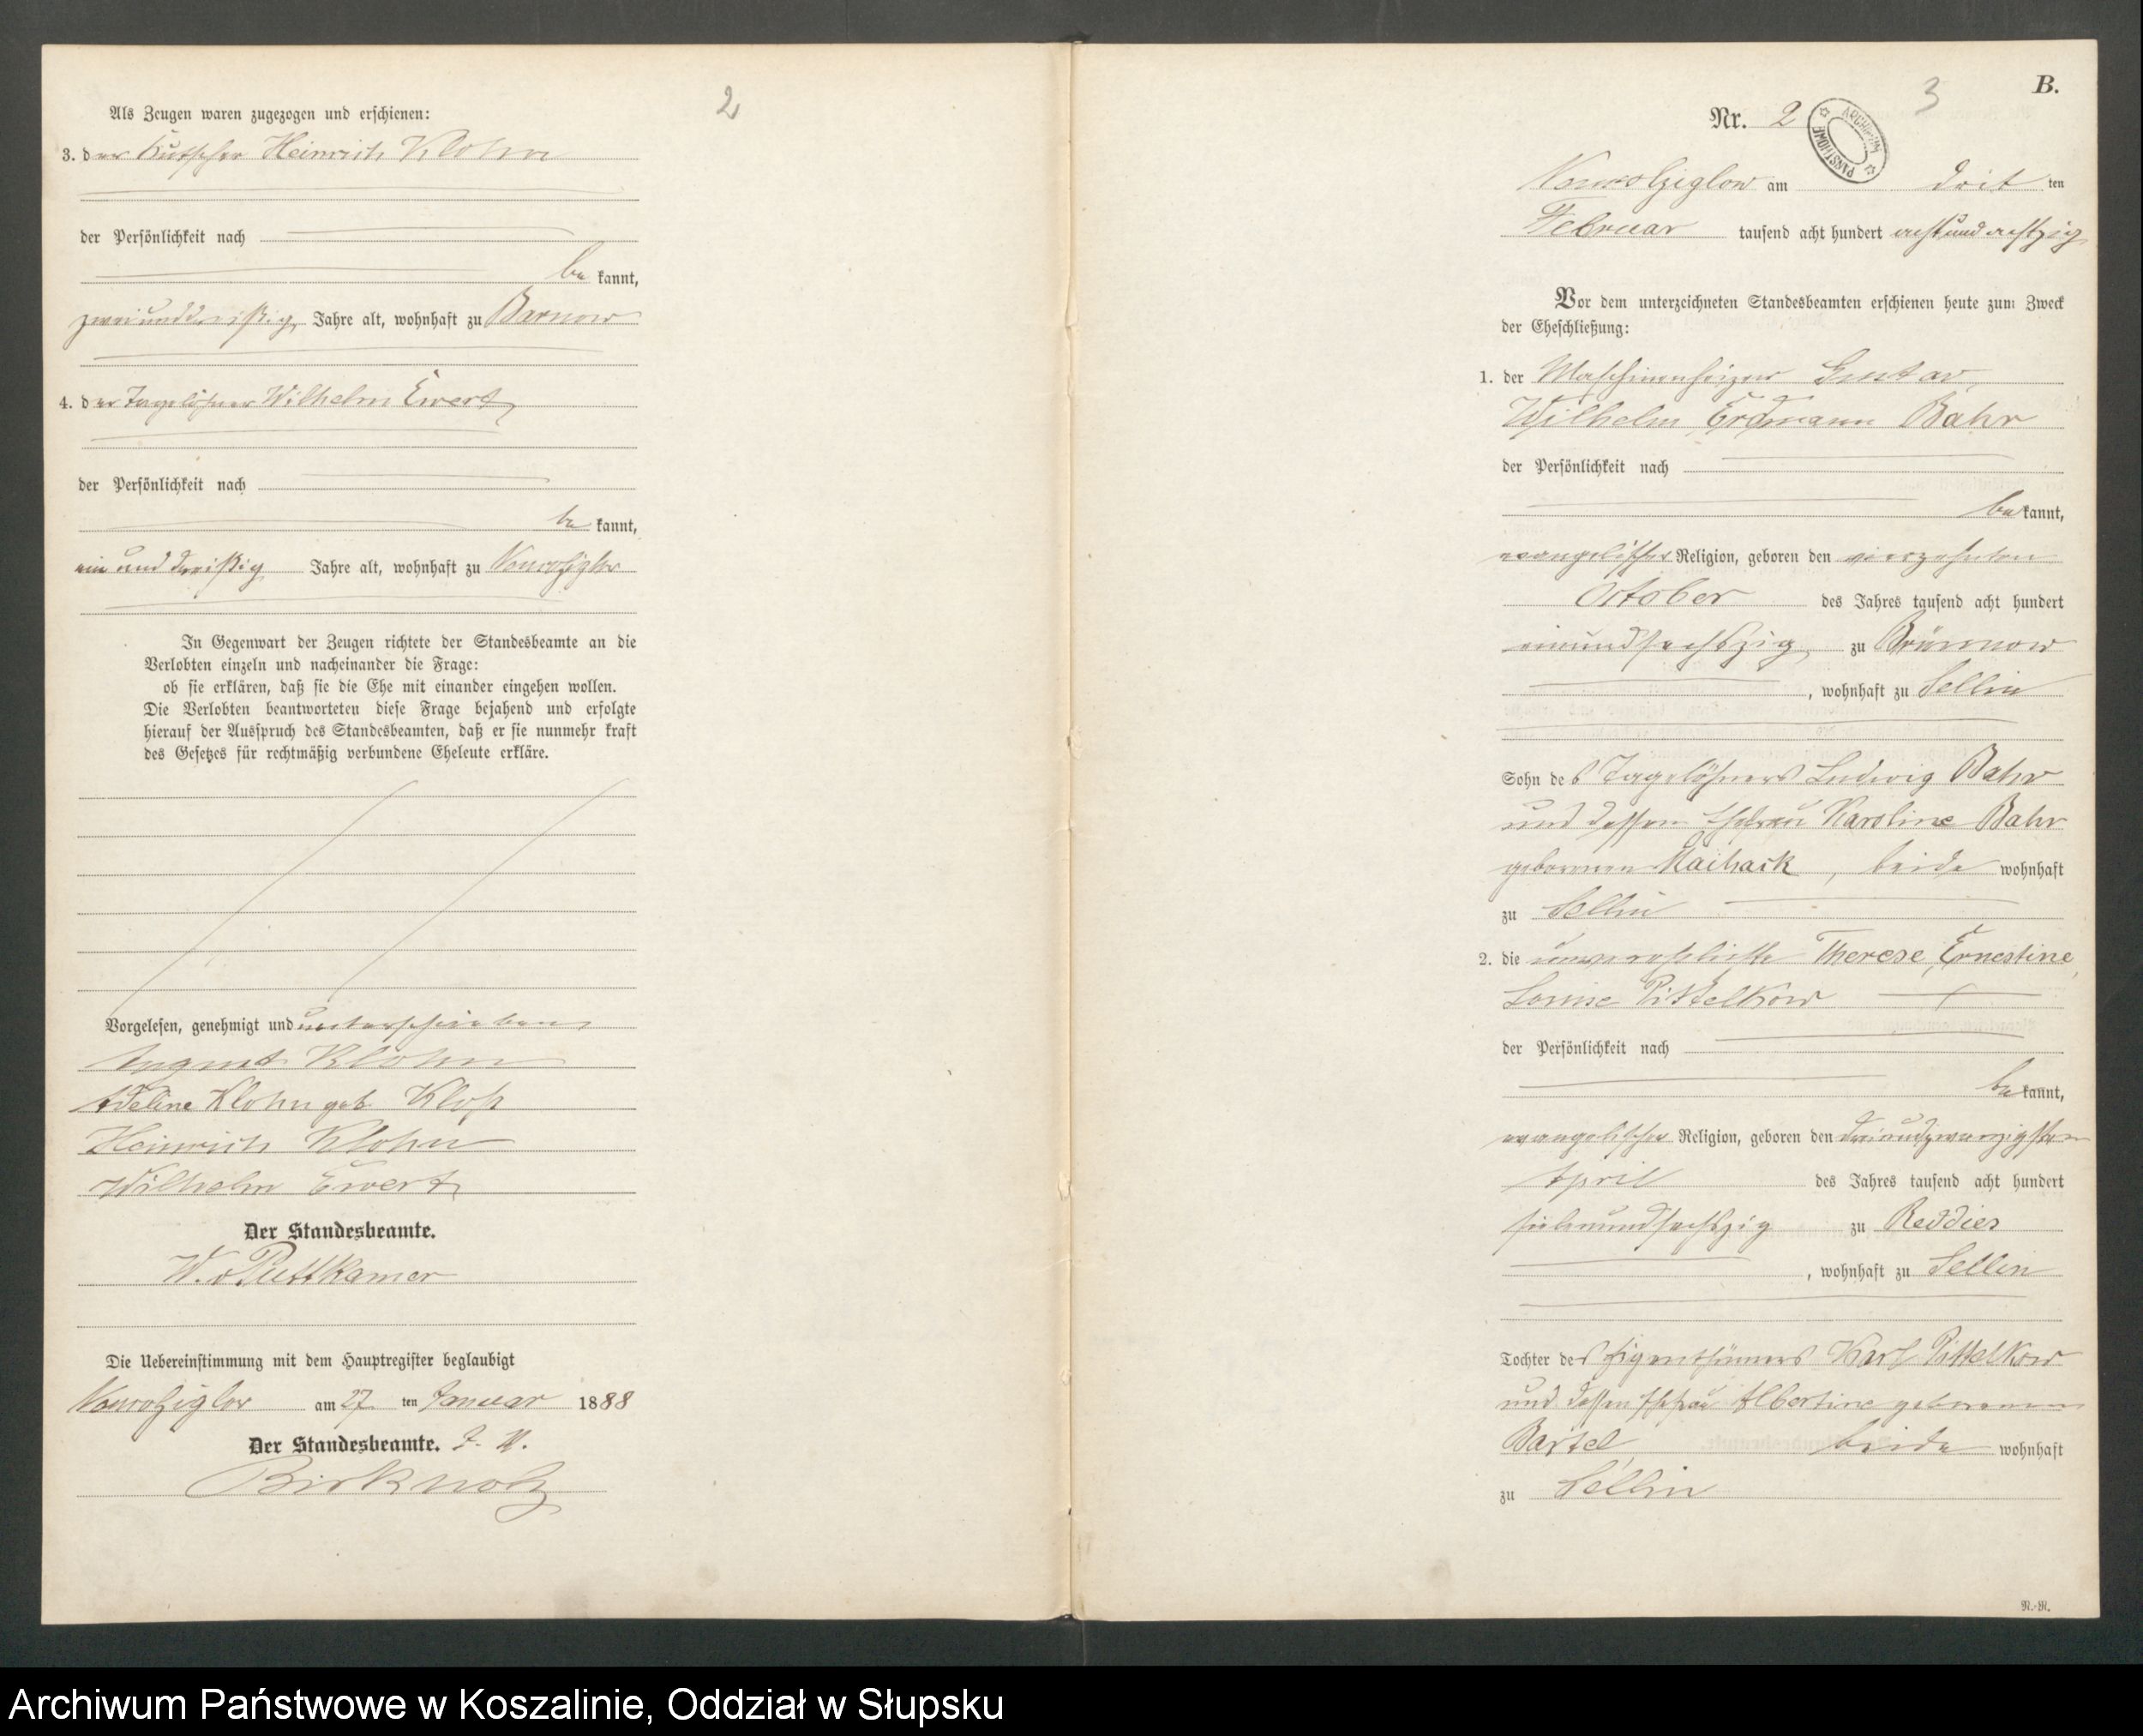 2
Als Zeugen waren zugezogen und erschienen:
3. der Kutscher Heinrich Klohn
der Persönlichkeit nach
be kannt,
zweiunddreißig Jahre alt, wohnhaft zu Barnow
4. der Tagelöhner Wilhelm Ewert
der Persönlichkeit nach
be kannt,
ein und dreißig Jahre alt, wohnhaft zu
In Gegenwart der Zeugen richtete der Standesbeamte an die
Verlobten einzeln und nacheinander die Frage:
ob sie erklären, daß sie die Ehe mit einander eingehen wollen.
Die Verlobten beantworteten diese Frage bejahend und erfolgte
hierauf der Ausspruch des Standesbeamten, daß er sie nunmehr kraft
des Gesetzes für rechtmäßig verbundene Eheleute erkläre.
Vorgelesen, genehmigt und unterschrieben
August Klohn
Adeline Klohn geb. Kloß
Heinrich Klohn
Wilhelm Ewert
Der Standesbeamte.
W. v Puttkamer
Die Uebereinstimmung mit dem Hauptregister beglaubigt
am 27 ten Januar 1888
Der Standesbeamte. J. V.
Birkholz
3
B.
Nr. 2
ARCHIWUM PAŃSTWOWE
am drit ten
Februar tausend acht hundert achtundachtzig
Vor dem unterzeichneten Standesbeamten erschienen heute zum Zweck
der Eheschließung:
1. der Maschinenheizer Gustav,
Wilhelm Erdmann Bahr
der Persönlichkeit nach
be kannt,
evangelischer Religion, geboren den vierzehnten
October des Jahres tausend acht hundert
einundsechszig zu Brünnow
, wohnhaft zu Sellin
Sohn des Tagelöhners Ludwig Bahr
und dessen Ehefrau Karoline Bahr
geborenen Maihack, beide wohnhaft
zu Sellin
2. die unverehelichte Therese, Ernestine,
Louise Pittelkow
der Persönlichkeit nach
be kannt,
evangelischer Religion, geboren den dreiundzwanzigsten
April des Jahres tausend acht hundert
siebenundsechszig zu Reddies
, wohnhaft zu Sellin
Tochter des Eigenthümers Karl Pittelkow
und dessen Ehefrau Albertine geborenen
Bartel beide wohnhaft
zu Sellin
R.-R.
Archiwum Państwowe w Koszalinie, Oddział w Słupsku